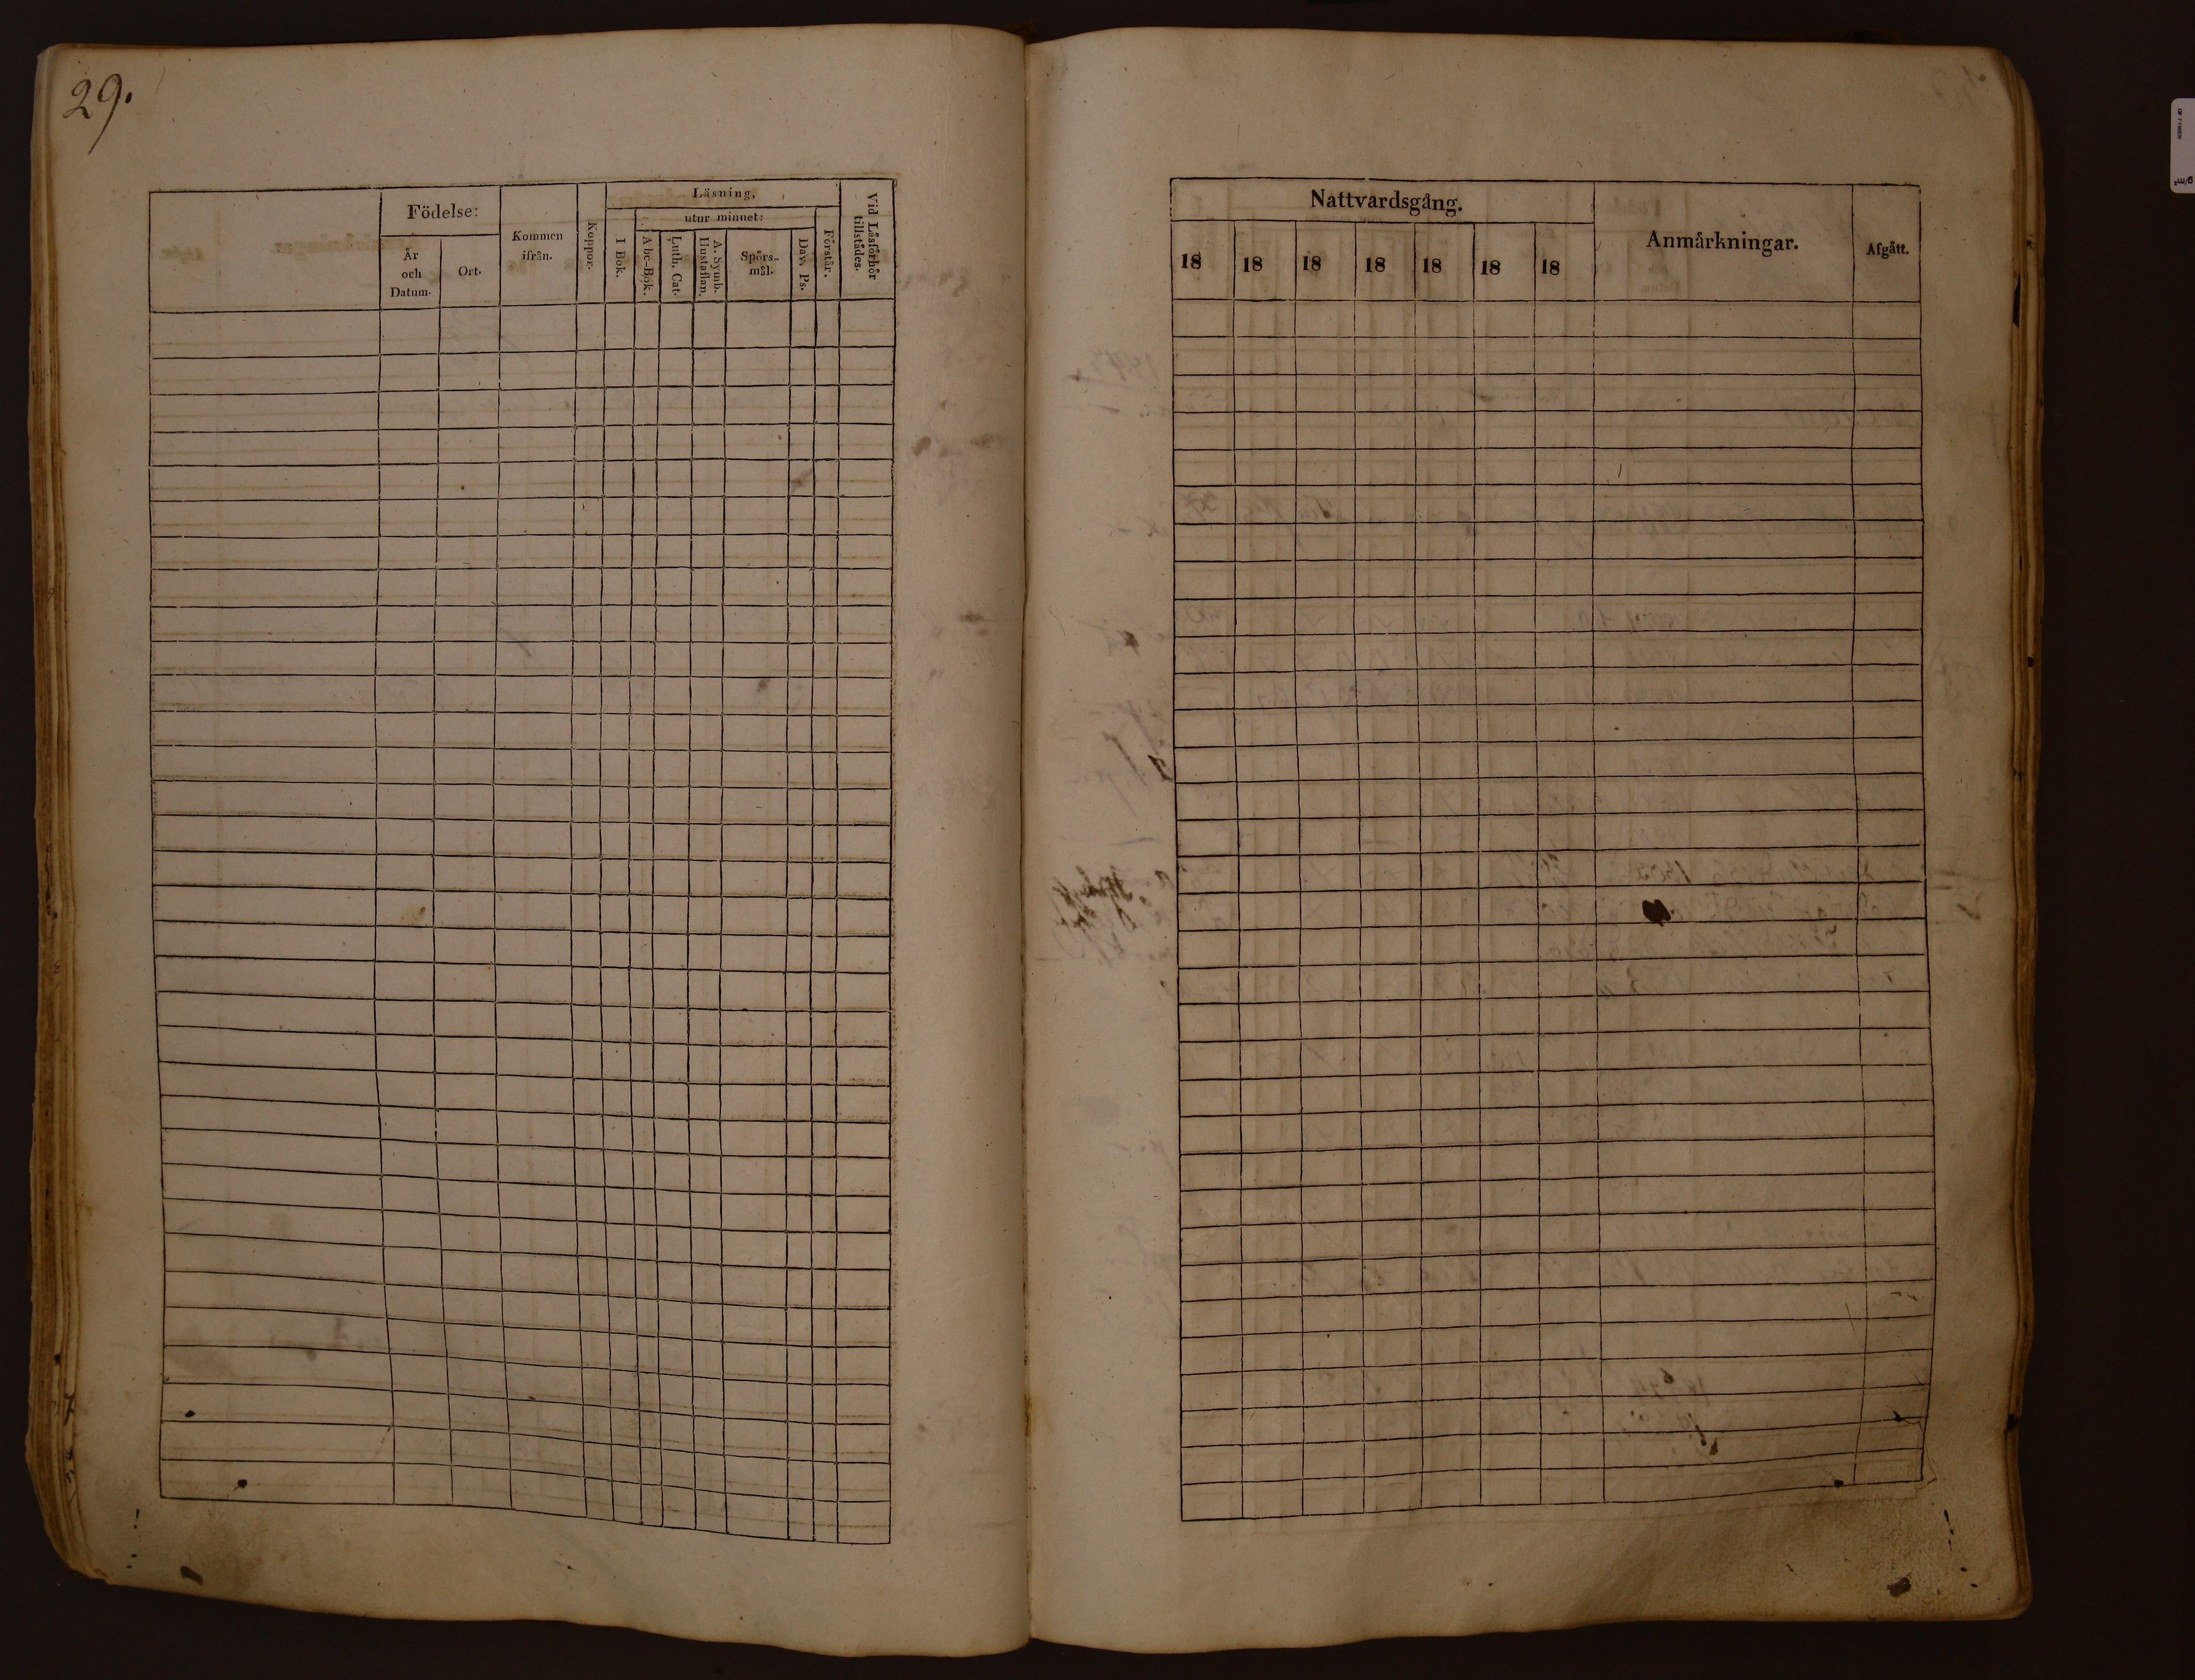 29.
Födelse:
År
och
Datum.
Ort.
Kommen
ifrån.
Koppor.
Läsning.
utur minnet:
I Bok.
Abc-Bok.
Luth. Cat.
A. Symb.
Hustaflan.
Spörs-
mål.
Dav. Ps.
Förstår.
Vid Läsförhör
tillstädes.
Nattvardsgång.
18 18 18 18 18 18 18
Anmärkningar.
Afgått.